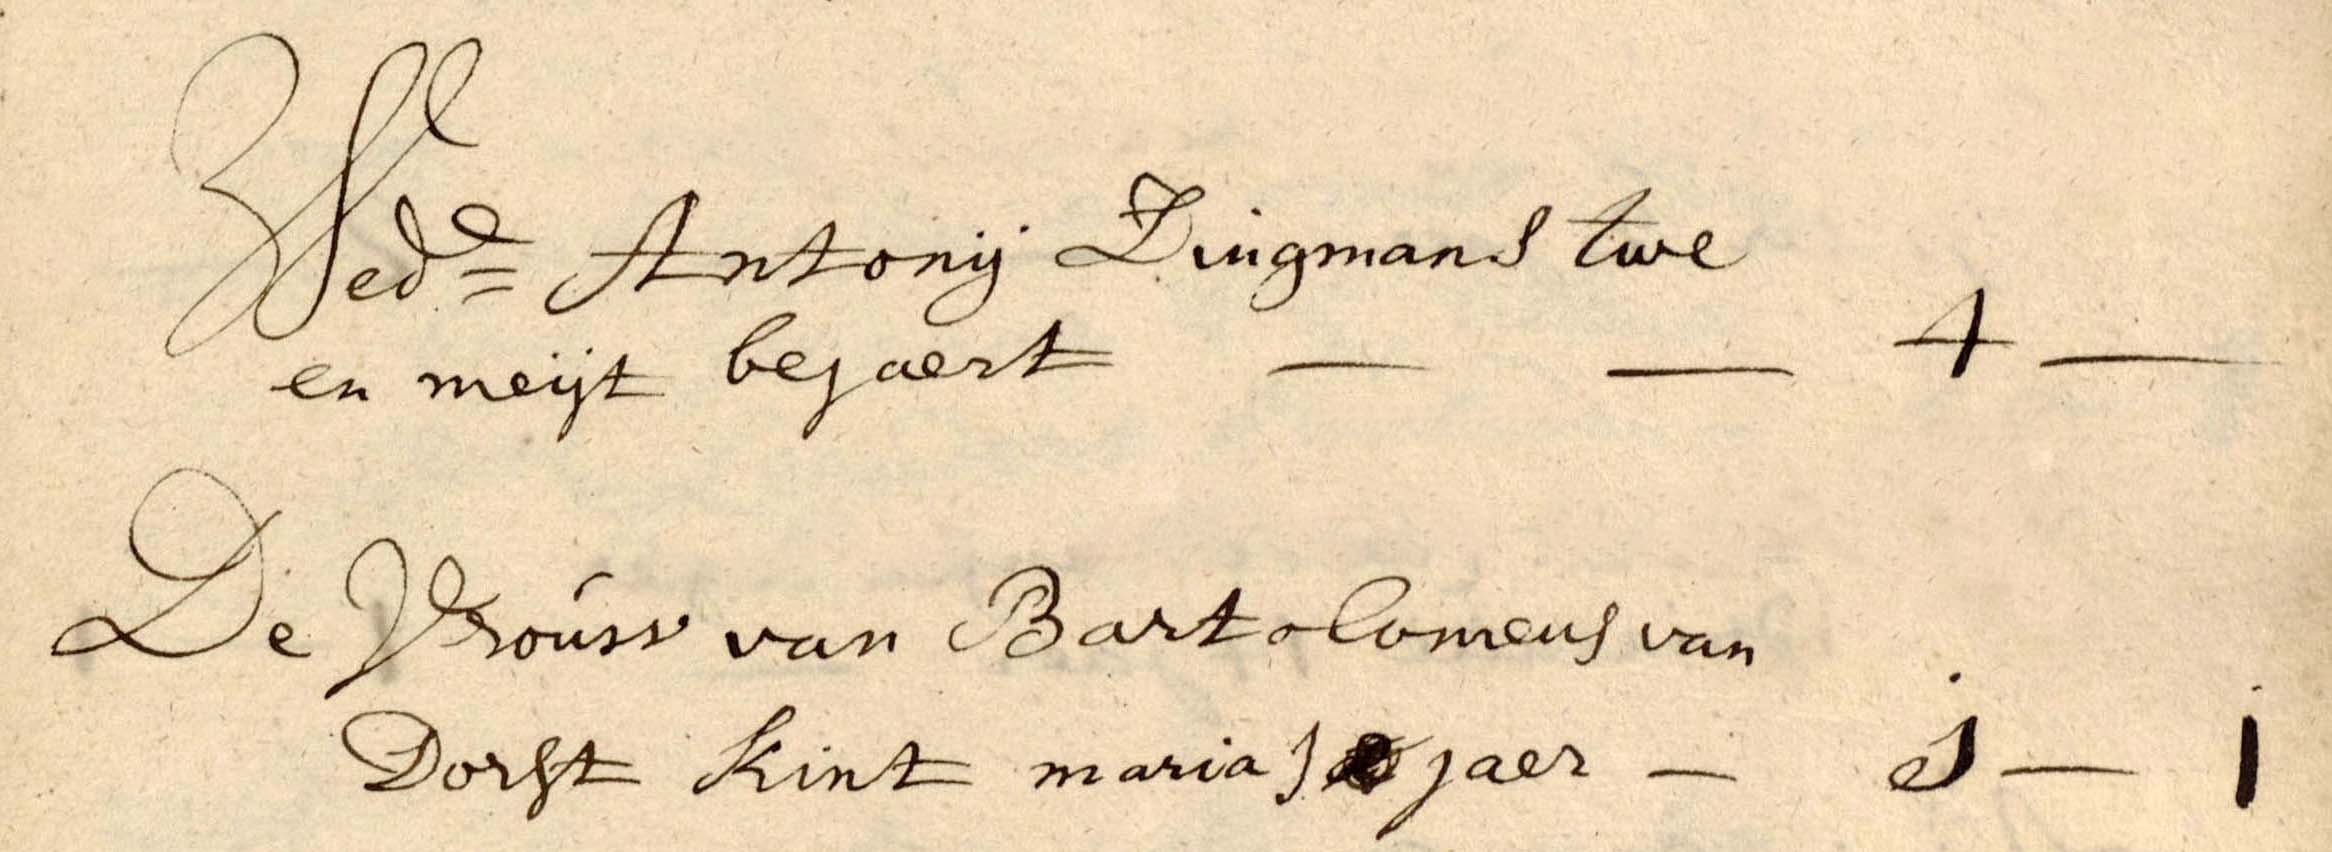 Wed:e Antonij Dingmans twe
en meijt bejaert — — 4 —
De Vrouw van Bartolomeus van
Dorst kint maria jaer — 1 — 1